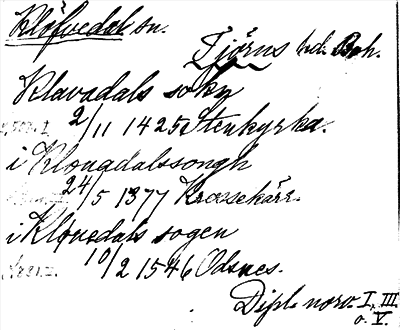 Klöfvedal sn.
Tjörns hd. Boh.
Klavadals sokn
2/11 1425 Stenkyrka.
i Klougdalssongh
24/5 1377 Krossekärr.
i Kløuedals sogen
10/2 1546 Odsnes.
Dipl. norv. I, III
o. V.